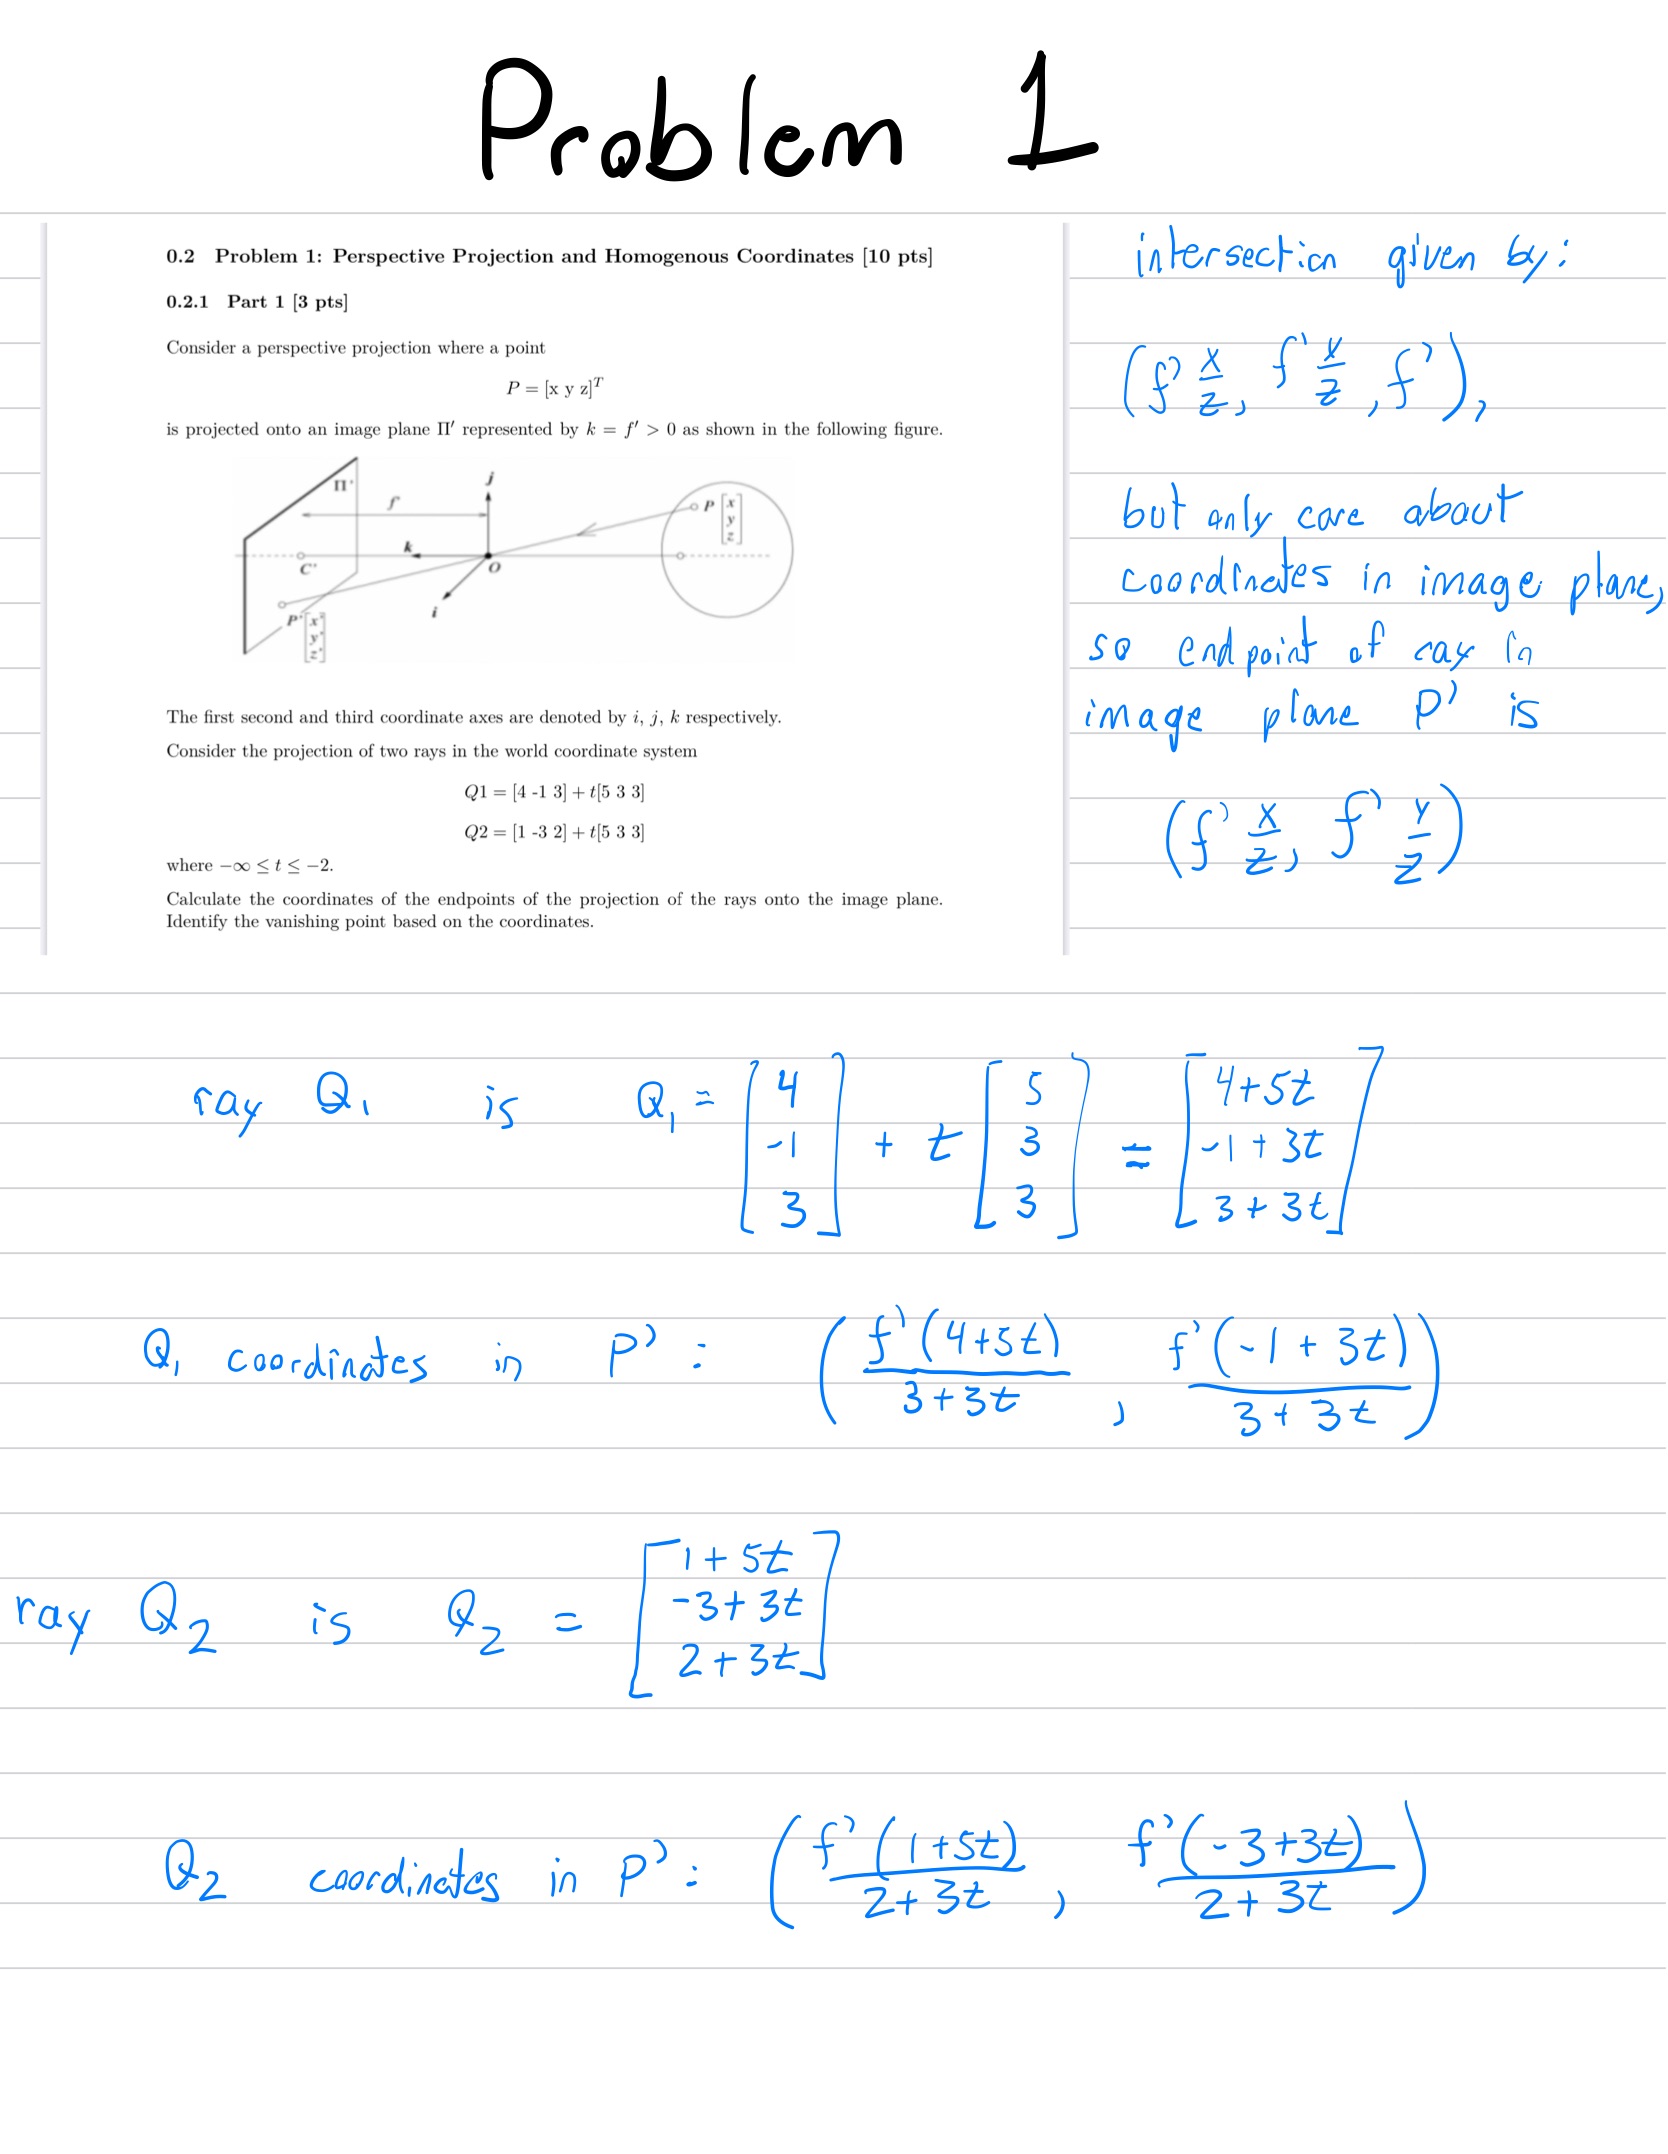 Problem 1
0.2 Problem 1: Perspective Projection and Homogenous Coordinates [10 pts]
0.2.1 Part 1 [3 pts]
Consider a perspective projection where a point
P = [x y z]^T
is projected onto an image plane Π' represented by k = f' > 0 as shown in the following figure.
Π'
f
j
k
C'
O
i
P [x y z]
P' [x' y' z']
The first second and third coordinate axes are denoted by i, j, k respectively.
Consider the projection of two rays in the world coordinate system
Q1 = [4 -1 3] + t[5 3 3]
Q2 = [1 -3 2] + t[5 3 3]
where −∞ ≤ t ≤ −2.
Calculate the coordinates of the endpoints of the projection of the rays onto the image plane.
Identify the vanishing point based on the coordinates.
intersection given by:
(f' x/z, f' y/z, f'),
but only care about
coordinates in image plane,
so endpoint of ray in
image plane P' is
(f' x/z, f' y/z)
ray Q₁ is Q₁ = [4 -1 3] + t [5 3 3] = [4+5t -1+3t 3+3t]
Q₁ coordinates in P': (f'(4+5t)/3+3t, f'(-1+3t)/3+3t)
ray Q₂ is Q₂ = [1+5t -3+3t 2+3t]
Q₂ coordinates in P': (f'(1+5t)/2+3t, f'(-3+3t)/2+3t)